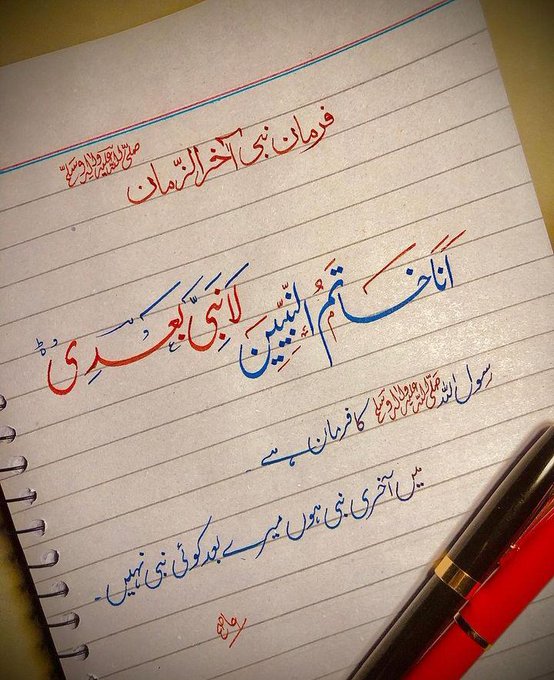 فرمان نبی آخر الزّمان صلی اللہ علیہ وآلہ وسلم
اَنَا خَاتَمُ النَّبِیِّیْنَ لَا نَبِیَّ بَعْدِی
رسول اللہ صلی اللہ علیہ وآلہ وسلم کا فرمان ہے
میں آخری نبی ہوں میرے بعد کوئی نبی نہیں۔